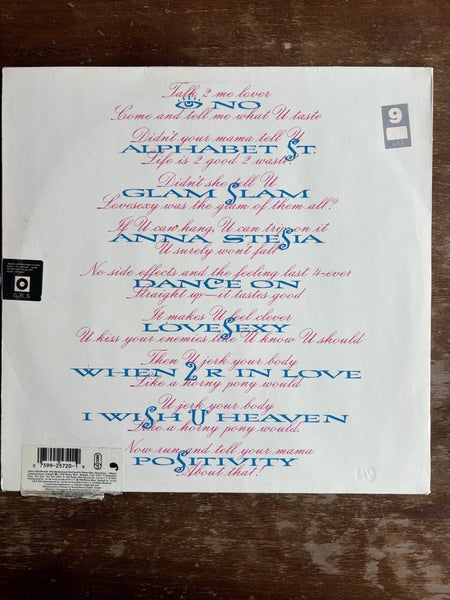 Talk 2 me lover
👁 NO
Come and tell me what U taste
Didn't your mama tell U
ALPHABET St.
Life is 2 good 2 waste?
Didn't she tell U
GLAM SLAM
Lovesexy was the glam of them all?
If U can hang, U can try on it
ANNA STESIA
U surely won't fall
No side effects and the feeling last 4-ever
DANCE ON
Straight up—it tastes good
It makes U feel clever
LOVESEXY
U kiss your enemies like U know U should
Then U jerk your body
WHEN 2 R IN LOVE
Like a horny pony would
U jerk your body
I WISH U HEAVEN
Like a horny pony would.
Now run and tell your mama
POSITIVITY
About that!
9
G.R.S
0 7599-25720-1 9